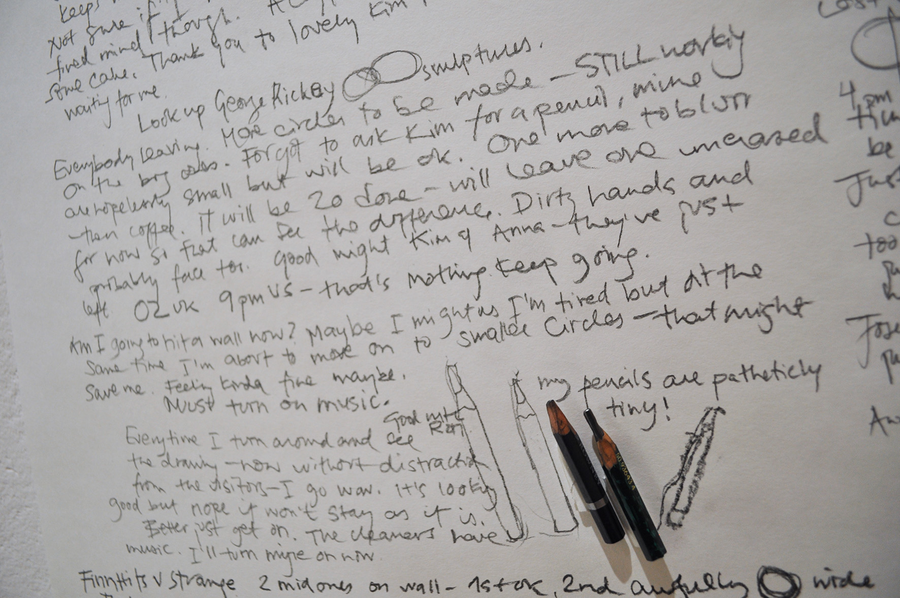 keeps
Not sure if
tired mind though.
some cake. Thank you to lovely Kim
waiting for me.
Look up George Rickey sculptures.
Everybody leaving. More circles to be made - STILL working
on the big ones. Forgot to ask Kim for a pencil, mine
are hopelessly small but will be ok. One more to blurr
- then coffee. It will be 20 done - will leave one unerased
for now so that can see the difference. Dirty hands and
probably face too. Good night Kim & Anna - they've just
left 02 UK 9pm US - that's nothing. Keep going.
Am I going to hit a wall now? Maybe I might as I'm tired but at the
same time I'm about to move on to smaller circles - that might
save me. Feeling kinda fine maybe.
Must turn on music.
my pencils are patheticly
tiny!
Good nite
Everytime I turn around and see
the drawing - now without distraction
from the visitors - I go wow. It's looking
good but nope it won't stay as it is.
Better just get on. The cleaners have
music. I'll turn mine on now.
2 mid ones on wall - 1st ok, 2nd awfully wide
4pm
be
Just
too